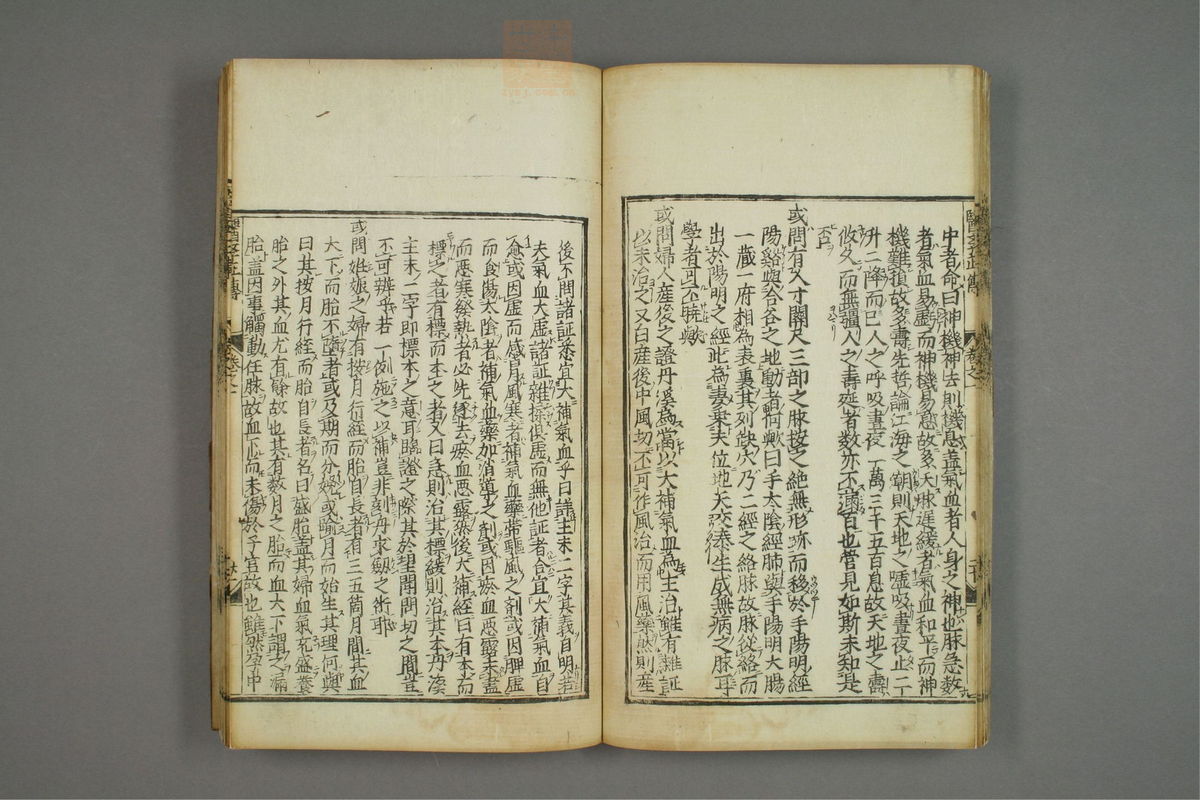 中者命曰神機神去則機息蓋氣血者人身之神也脉急数
者氣血易虧而神機易息故多夭脉遲緩者氣血和平而神
機難損故多壽先哲論江海之潮則天地之嘘吸晝夜止二
升二降而已人之呼吸晝夜一萬三千五百息故天地之壽
攸久而無疆人之壽延者数亦不滿百也管見如斯未知是
否
或問有人寸關尺三部之脉按之絶無形迹而移於手陽明經
陽谿與合谷之地動者何歟曰手太陰經肺與手陽明大腸
一藏一府相為表裏其列缺穴乃二經之絡脉故脉從絡而
出於陽明之經此為妻乗夫位地天交泰生成無病之脉耳
學者可不暁歟
或問婦人産後之證丹溪為當以大補氣血為主治雖有雜証
以末治之又曰産後中風切不可作風治而用風藥然則産
後不問諸証悉宜大補氣血乎曰詳主末二字其義自明盖
夫氣血大虚諸証雜揉俱虚而無他証者合宜大補氣血自
愈或因虚而感冒風寒者補氣血藥帯驅風之剤或因脾虚
而食傷太陰者補氣血藥加消導之剤或因瘀血悪露未盡
而悪寒發熱者必先逐去瘀血悪露然後大補経曰有本而
標之者有標而本之者又曰急則治其標緩則治其本丹溪
主末二字即標本之意耳臨證之際其於望聞問切之間豈
不可辨乎若一例施之以補豈非刻舟求劔之術耶
或問妊娠之婦有按月行経而胎自長者有三五箇月間其血
大下而胎不墮者或及期而分娩或踰月而始生其理何與
曰其按月行経而胎自長者名曰盛胎盖其婦血氣充盛養
胎之外其血尤有餘故也其有数月之胎而血大下謂之漏
胎盖因事觸動任脉故血下而未傷於子宮故也雖然孕中